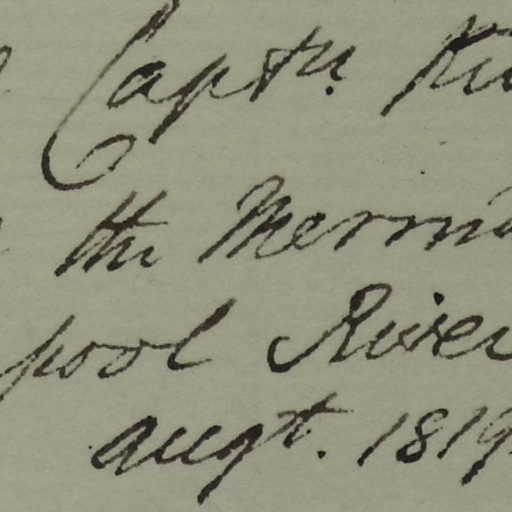 Captn. Ki
the Merma
pool River
augt. 1819